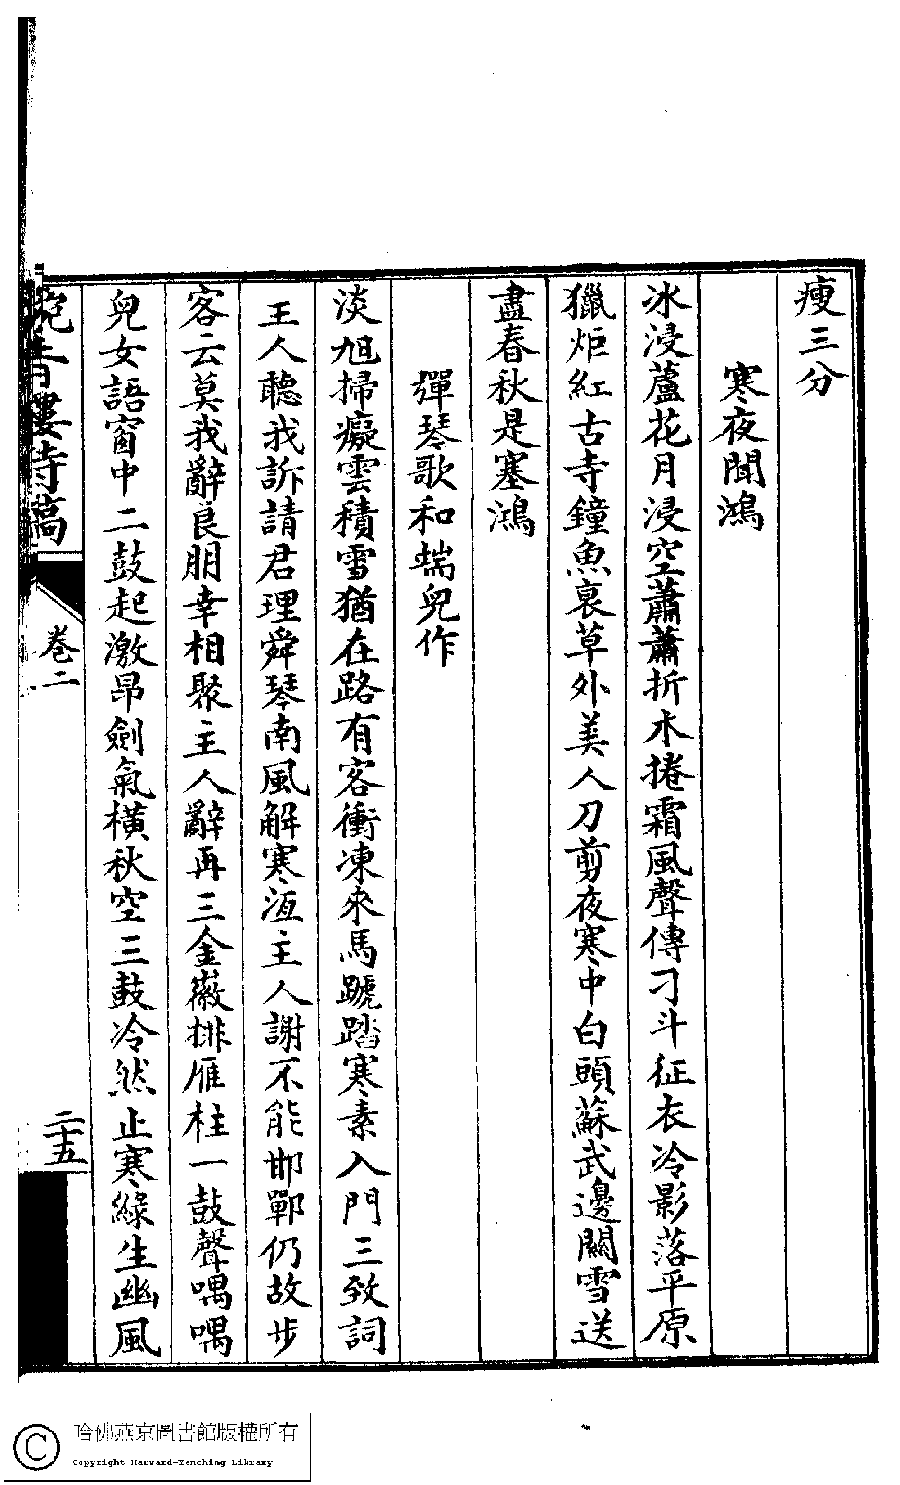 瘦三分
寒夜聞鴻
冰浸蘆花月浸空蕭蕭折木捲霜風聲傳刁斗征衣冷影落平原
獵炬紅古寺鐘魚裛草外美人刀剪夜寒中白頭蘇武邊關雪送
盡春秋是塞鴻
彈琴歌和耑兒作
淡旭掃癡雲積雪猶在路有客衝凍來馬蹏踏寒素入門三致詞
王人聽我訴請君理舜琴南風解寒沍主人謝不能邯鄲仍故步
客云莫我辭良朋幸相聚主人辭再三金徽排雁柱一鼓聲喁喁
兒女語窗中二鼓起激昂劍氣橫秋空三鼓冷然止寒綠生幽風
晚青樓詩稿
卷二
二十五
哈佛燕京圖書館版權所有
Copyright Harvard-Yenching Library